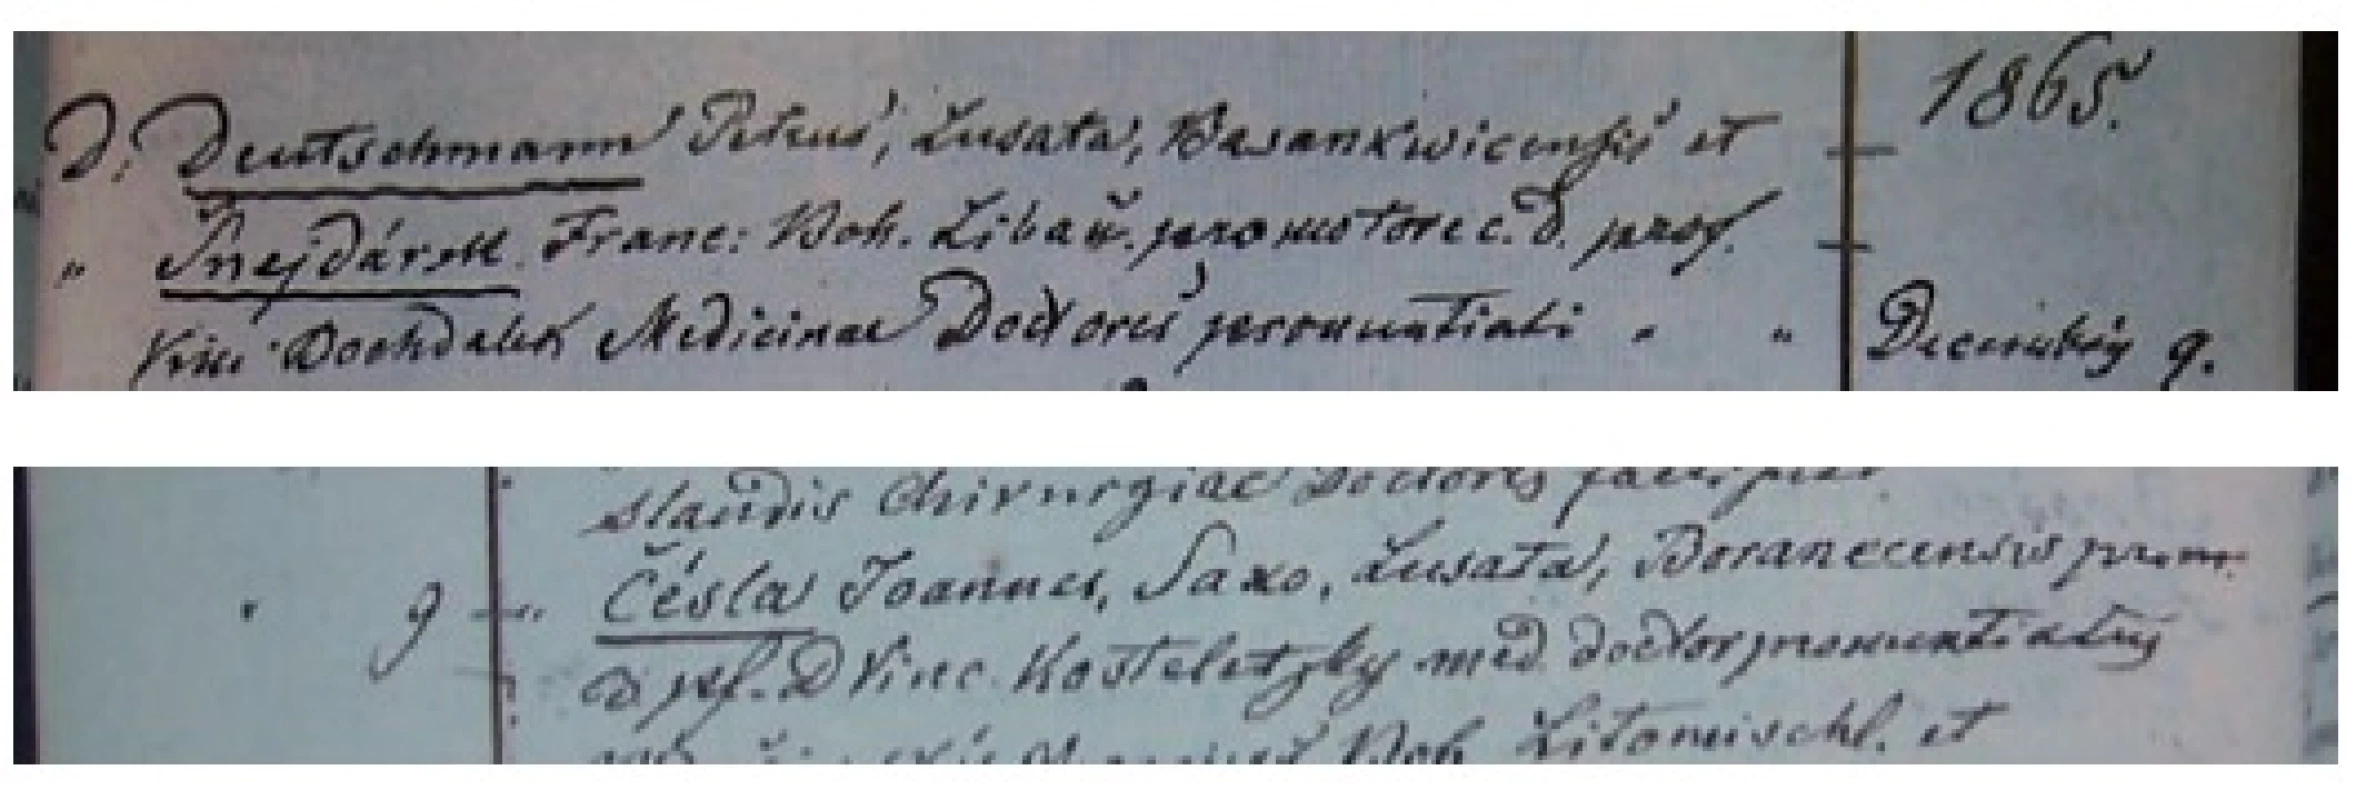 1865.
D. Deutschmann Petrus, Lusata, Basankwicensis et
" Šnejdárek Franc: Boh. Libaň. promotore c. D. prof.
Vinc. Bochdalek Medicinae Doctores pronuntiati " " Decembris 9.
slandis Chirurgiae Doctores
9 Čésla Joannes, Saxo, Lusata, Boranecensis prom.
D. prf. D Vinc. Kosteletzky med. doctor pronuntiatus
Boh. Litomischl. et